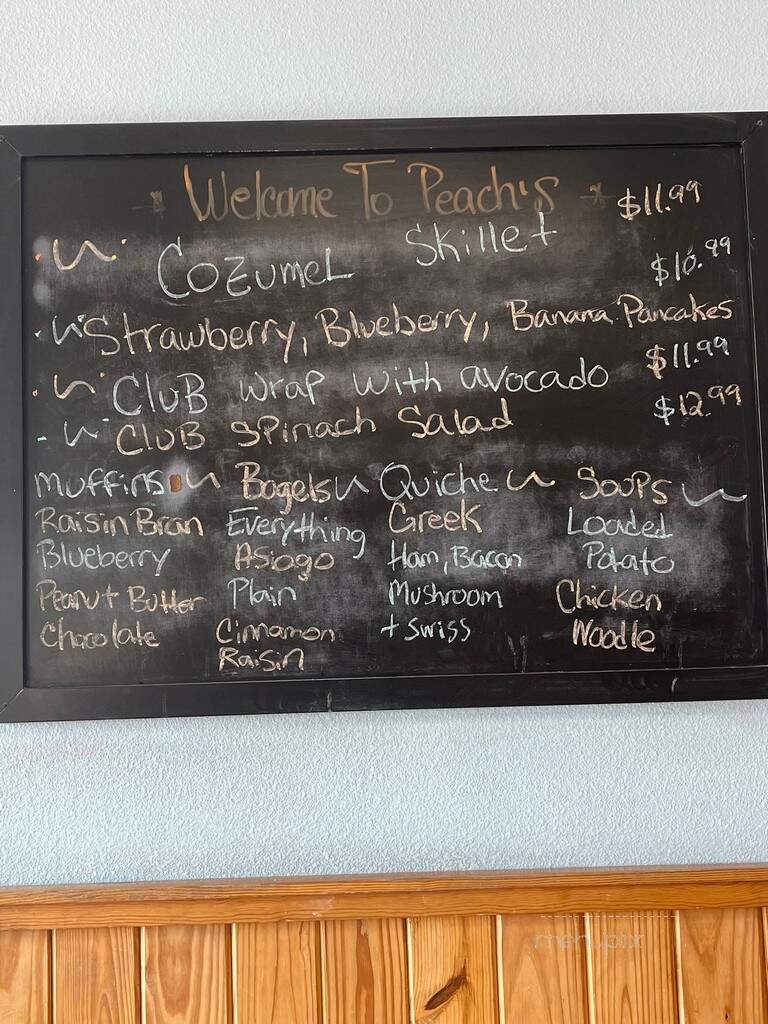 Welcome To Peach's
$11.99
Cozumel Skillet
$10.99
Strawberry, Blueberry, Banana Pancakes
$11.99
Club wrap with avocado
$12.99
Club spinach Salad
muffins Bagels Quiche Soups
Raisin Bran Everything Greek Loaded
Blueberry Asiago Ham, Bacon Potato
Peanut Butter Plain Mushroom Chicken
Chocolate Cinnamon + Swiss Noodle
Raisin
menupix